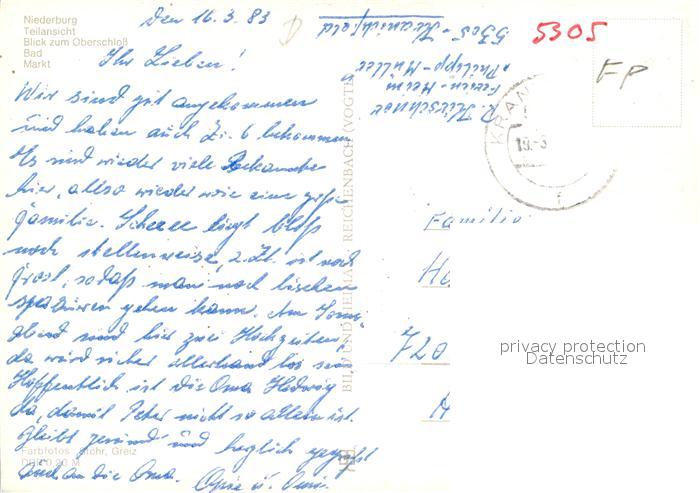 Niederburg
Teilansicht
Blick zum Oberschloß
Bad
Markt
Den 16.3.83
Ihr Lieben!
Wir sind gut angekommen
und haben auch Zi. 6 bekommen
Es sind wieder viele Bekannte
hier, also wieder wie eine große
Familie. Schnee liegt bloß
noch stellenweise, z. Zt. ist noch
Frost, sodaß man noch bischen
spazieren gehen kann. Am Sonn-
abend sind hier zwei Hochzeiten,
da wird sicher allerhand los sein
Hoffentlich ist die Oma Hedwig
da, damit Peter nicht so allein ist.
Bleibt gesund und herzlich gegrüßt
auch an die Oma. Opa u. Omi.
Farbfotos Mohr, Greiz
DDR 0,20 M
BILD UND HEIMAT REICHENBACH (VOGTL
R. Kirschner
Ferien-Heim
"Philipp-Müller"
5305-Kranichfeld
5305
FP
KRAN
Familie
Ho
720
A
privacy protection
Datenschutz